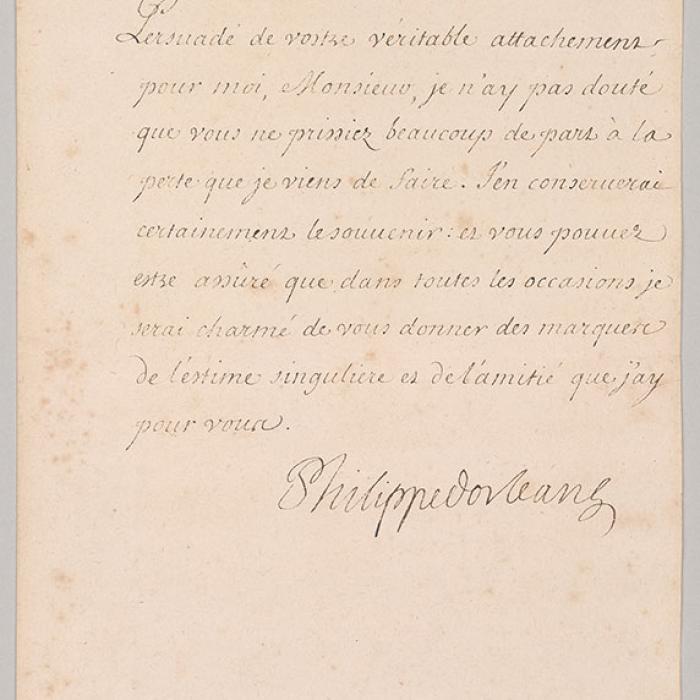 Persuadé de vostre véritable attachement
pour moi, Monsieur, je n'ay pas douté
que vous ne prissiez beaucoup de part à la
perte que je viens de faire. J'en conserverai
certainement le souvenir: et vous pouvez
estre assûré que dans toutes les occasions je
serai charmé de vous donner des marques
de l'estime singuliere et de l'amitié que j'ay
pour vous.
Philippe d'orleans